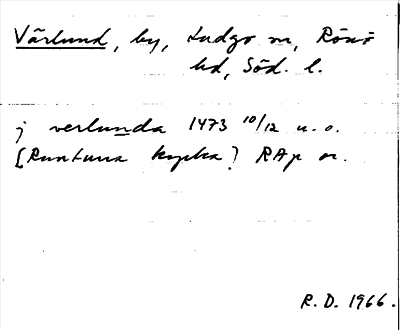 Värlund, by, Ludgo sn, Rönö
hd, Söd. l.
j verlunda 1473 10/12 u.o.
[Runtuna kyrka] RAp or.
R.D. 1966.